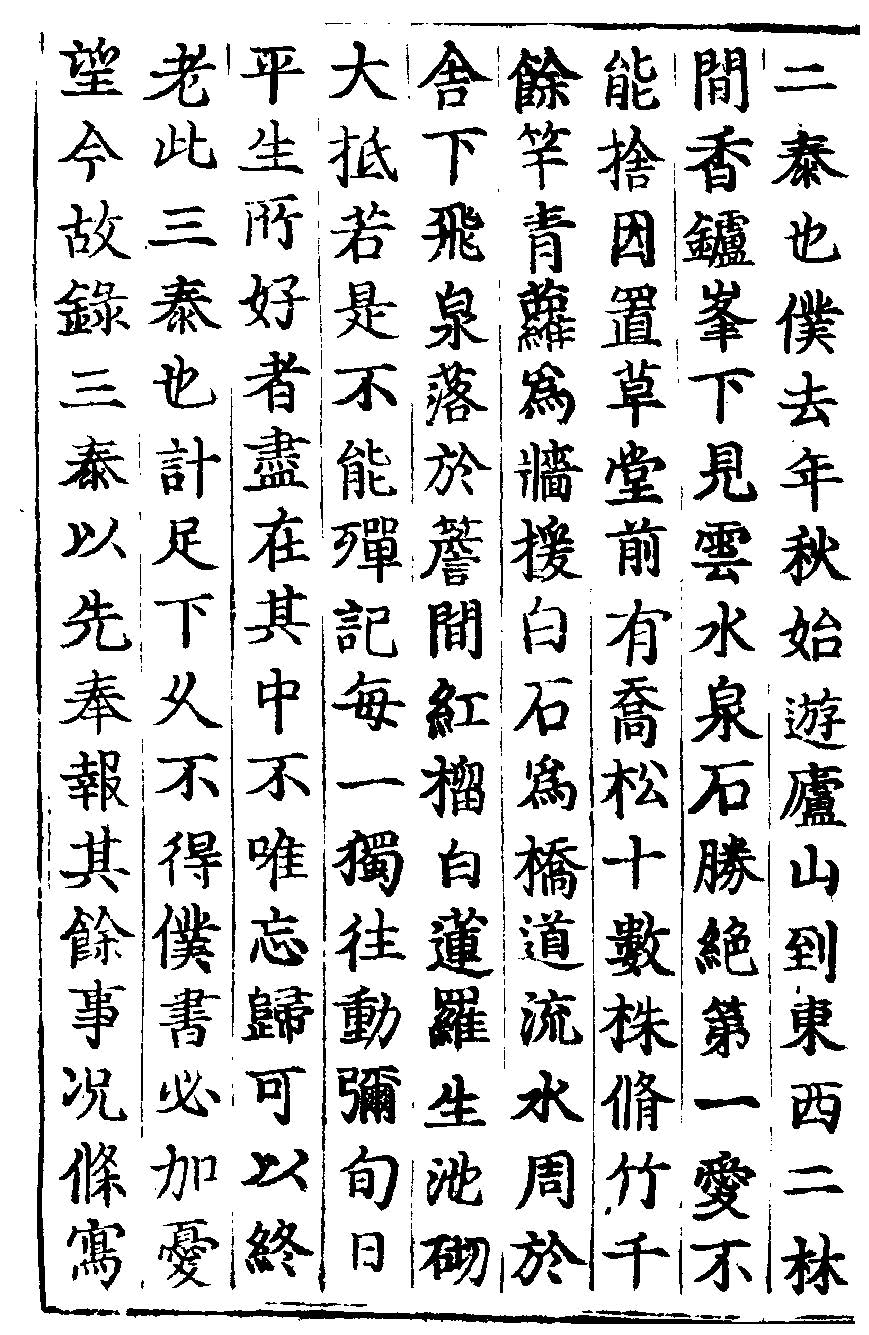 二泰也僕去年秋始遊廬山到東西二林
間香鑪峯下見雲水泉石勝絕第一愛不
能捨因置草堂前有喬松十數株脩竹千
餘竿青蘿爲牆援白石爲橋道流水周於
舍下飛泉落於簷間紅榴白蓮羅生池砌
大抵若是不能殫記每一獨往動彌旬日
平生所好者盡在其中不唯忘歸可以終
老此三泰也計足下久不得僕書必加憂
望今故錄三泰以先奉報其餘事况條寫